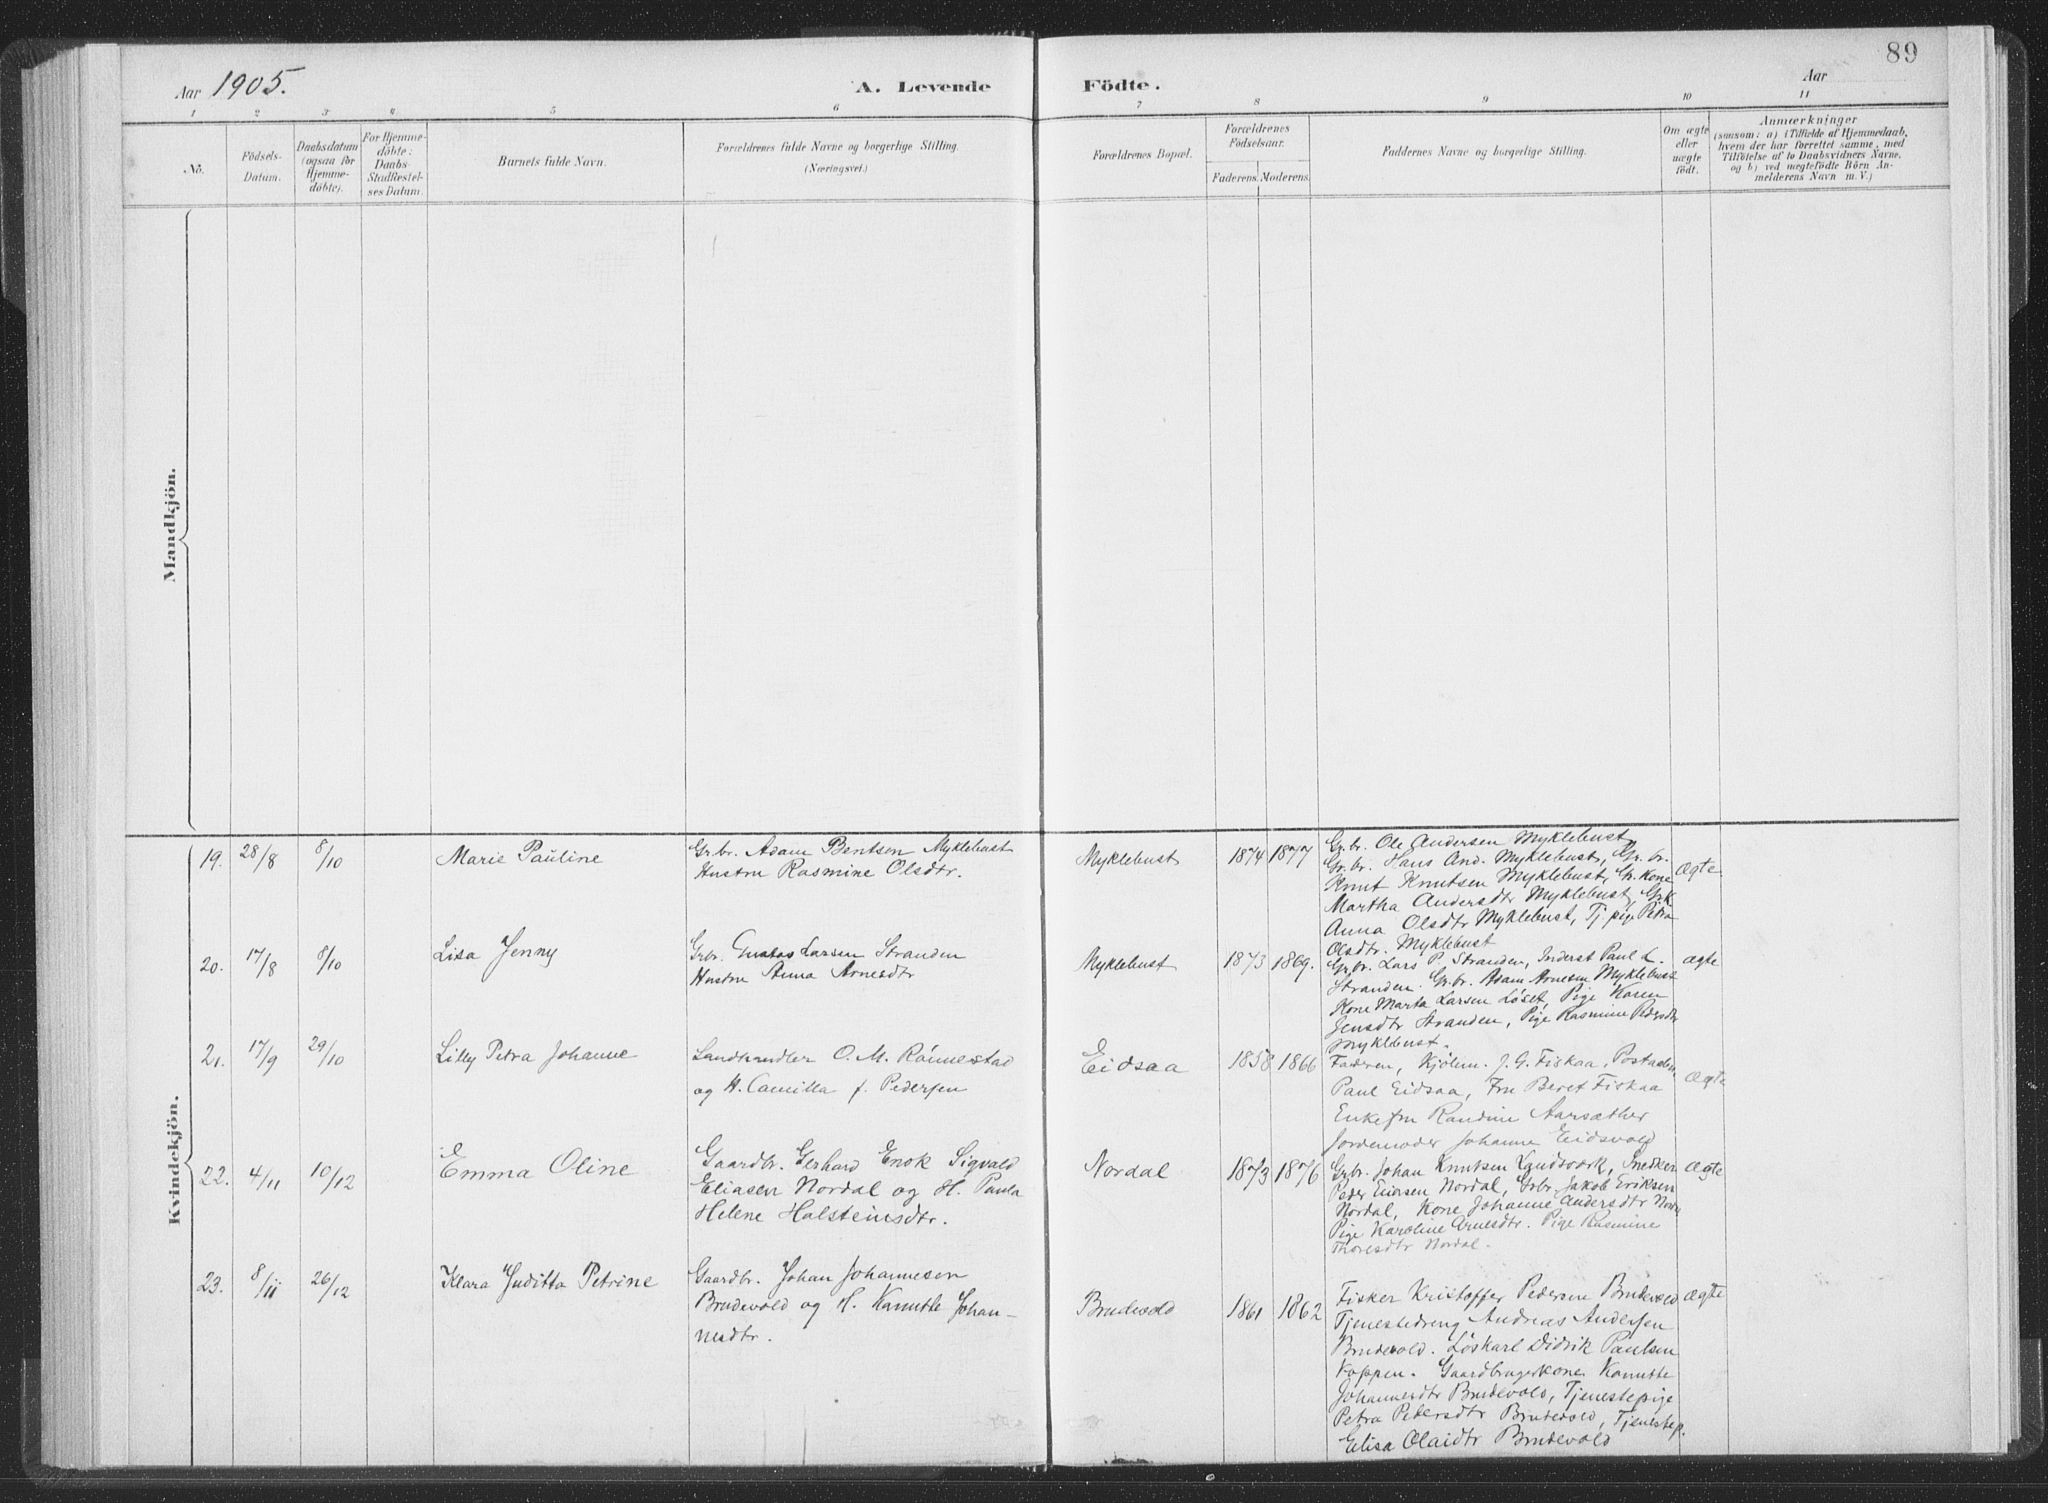 89
Aar 1905.
A. Levende Födte.
Aar
1 2 3 4 5 6 7 8 9 10 11
No.
Födsels-
Datum.
Daabsdatum
(ogsaa for
Hjemme-
döbte).
For Hjemme-
döbte:
Daabs-
Stadfæstel-
ses Datum.
Barnets fulde Navn.
Forældrenes fulde Navne og borgerlige Stilling.
(Næringsvei.)
Forældrenes Bopæl.
Forældrenes
Födselsaar.
Faderens. Moderens.
Faddernes Navne og borgerlige Stilling.
Om ægte
eller
uægte
födt.
Anmærkninger
(saasom: a) i Tilfælde af Hjemmedaab,
hvem der har forrettet samme, med
Tilföielse af to Daabsvidners Navne,
og b) ved uægtefödte Börn An-
melderens Navn m. V.)
Mandkjön.
Kvindekjön.
19. 28/8 8/10
Marie Pauline
Gr.br. Adam Bentsen Myklebust
Hustru Rasmine Olsdtr.
Myklebust
1874 1877
Gr.br. Ole Andersen Myklebust,
Gr.br. Hans And. Myklebust, Gr.br.
Knut Knutsen Myklebust, Gr. kone
Martha Andersdtr Myklebust, Gr.k.
Anna Olsdtr Myklebust, Tj.pige Petra
Olsdtr. Myklebust
Ægte
20. 17/8 8/10
Lisa Jenny
Grbr. Gustav Larsen Stranden
Hustru Anna Arnesdtr
Myklebust
1873 1869.
Gr.br. Lars P. Stranden, Inderst Paul L.
Stranden. Gr.br. Adam Arnesen Myklebust
Kone Marta Larsen Løset, Pige Karen
Jensdtr Stranden, Pige Rasmine Pedersdtr
Myklebust.
ægte
21. 17/9 29/10
Lilly Petra Johanne
Landhandler O. M. Rønnestad
og H. Camilla f. Pedersen
Eidsaa
1858 1866
Faderen, Kjøbm. J. G. Fiskaa, Postaabn.
Paul Eidsaa, Fru Beret Fiskaa
Enkefru Randine Aarsæther
Jordemoder Johanne Eidsvold
Ægte
22. 4/11 10/12
Emma Oline
Gaardbr. Gerhard Enok Sigvald
Eliasen Nordal og H. Paula
Helene Holsteinsdtr.
Nordal
1873 1876
Grbr. Johan Knutsen Landsværk, Snedker
Peder Eliasen Nordal, Grbr. Jakob Eriksen
Nordal, Kone Johanne Andersdtr Nord.
Pige Karoline Arnesdtr. Pige Rasmine
Thoresdtr Nordal.
Ægte
23. 8/11 26/12
Klara Juditta Petrine
Gaardbr. Johan Johannesen
Brudevold og H. Kanutte Johan-
nesdtr.
Brudevold
1861 1862
Fisker Kristoffer Pedersen Brudevold
Tjenestedreng Andreas Andersen
Brudevold. Løskarl Didrik Paulsen
Koppen. Gaardbrugerkone Kanutte
Johannesdtr Brudevold, Tjenestepige
Petra Petersdtr Brudevold, Tjenestep.
Elisa Olaidtr Brudevold
Ægte